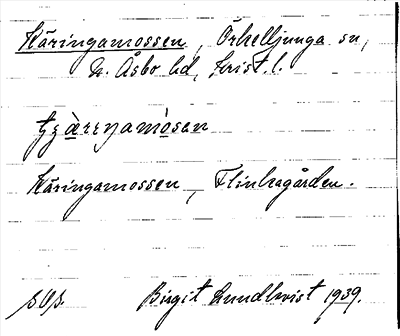 Käringamossen, Örkelljunga sn,
N. Åsbo hd, Krist. l.
Käringamossen, Flinkagården.
sOs. Birgit Lundkvist 1939.